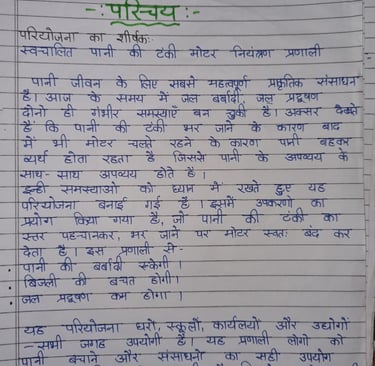 -: परिचय :-
परियोजना का शीर्षक:
स्वचालित पानी की टंकी मोटर नियंत्रण प्रणाली
पानी जीवन के लिए सबसे महत्वपूर्ण प्राकृतिक संसाधन
है। आज के समय में जल बर्बादी जल प्रदूषण
दोनों ही गंभीर समस्याएँ बन चुकी हैं। अक्सर देखते
हैं कि पानी की टंकी भर जाने के कारण बाद
में भी मोटर चलते रहने के कारण पानी बहकर
व्यर्थ होता रहता है जिससे पानी के अपव्यय के
साथ-साथ अपव्यय होते है।
इन्ही समस्याओ को ध्यान में रखते हुए यह
परियोजना बनाई गई है। इसमें उपकरणो का
प्रयोग किया गया है, जो पानी की टंकी का
स्तर पहचानकर, भर जाने पर मोटर स्वतः बंद कर
देता है। इस प्रणाली से-
पानी की बर्बादी रुकेगी।
बिजली की बचत होगी।
जल प्रदूषण कम होगा।
यह परियोजना घरो, स्कूलों, कार्यलयो और उद्योगों
- सभी जगह उपयोगी है। यह प्रणाली लोगो को
पानी बचाने और संसाधनो का सही उपयोग